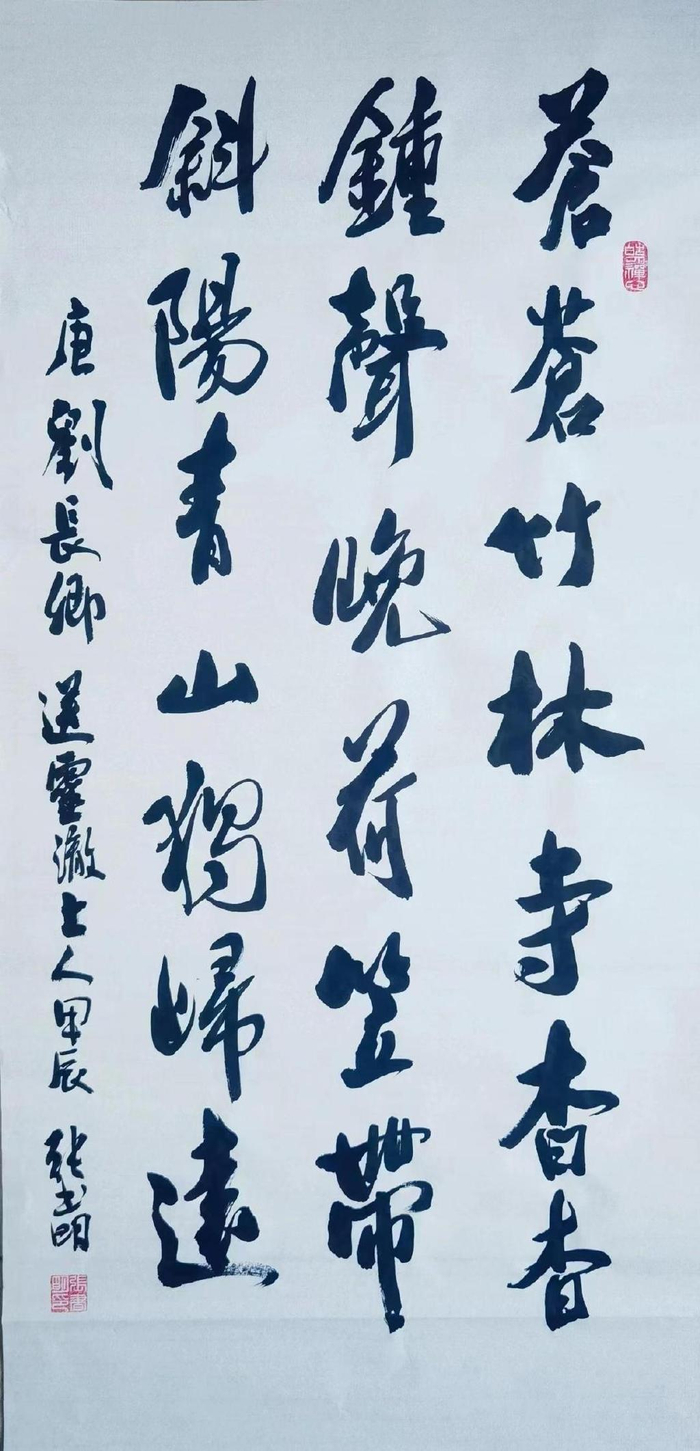 蒼蒼竹林寺杳杳
鍾聲晚荷笠帶
斜陽青山獨歸遠
唐劉長卿送靈澈上人甲辰張書明
張書明印